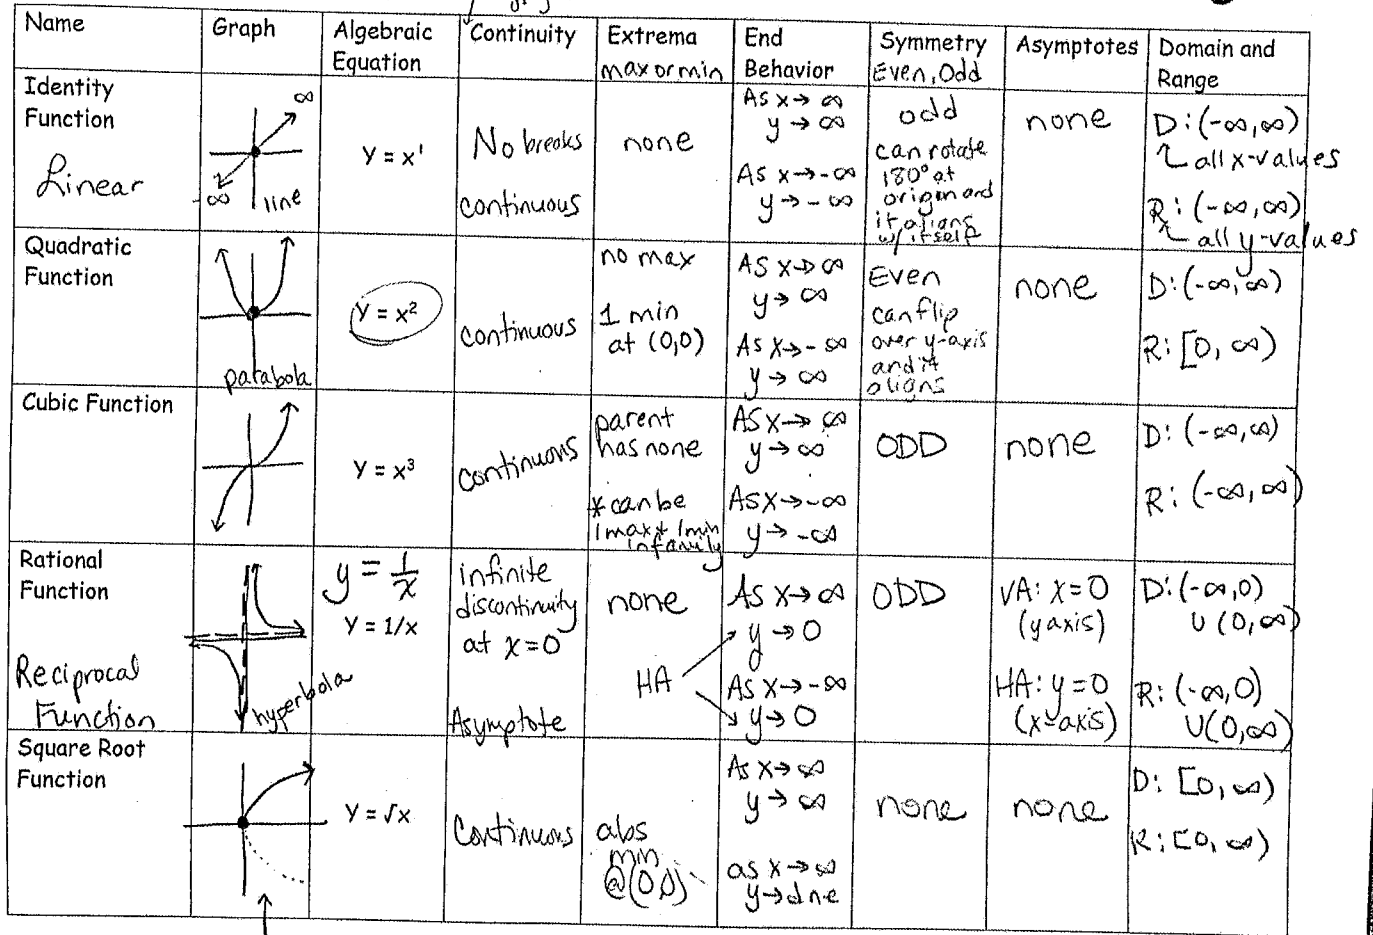 Name
Graph
Algebraic
Equation
Continuity
Extrema
max or min
End
Behavior
Symmetry
Even, Odd
Asymptotes
Domain and
Range
Identity
Function
Linear
∞
-∞
line
Y = x¹
No breaks
continuous
none
As x→ ∞
y → ∞
As x→-∞
y→-∞
odd
can rotate
180° at
origin and
it aligns
w/itself
none
D: (-∞,∞)
all x-values
R: (-∞,∞)
all y-values
Quadratic
Function
parabola
Y = x²
continuous
no max
1 min
at (0,0)
As x→∞
y→ ∞
As x→-∞
y→ ∞
Even
can flip
over y-axis
and it
aligns
none
D: (-∞,∞)
R: [0, ∞)
Cubic Function
Y = x³
continuous
parent
has none
* can be
1 max + 1 min
in family
As x→ ∞
y→∞
As x→-∞
y→-∞
ODD
none
D: (-∞,∞)
R: (-∞,∞)
Rational
Function
Reciprocal
Function
hyperbola
y = 1/x
Y = 1/x
infinite
discontinuity
at x=0
Asymptote
none
HA
As x→∞
y→0
As x→-∞
y→0
ODD
VA: x=0
(y axis)
HA: y=0
(x-axis)
D: (-∞,0)
U (0,∞)
R: (-∞,0)
U(0,∞)
Square Root
Function
Y = √x
Continuous
abs
min
@(0,0)
As x→∞
y→ ∞
as x→∞
y→dne
none
none
D: [0,∞)
R: [0,∞)